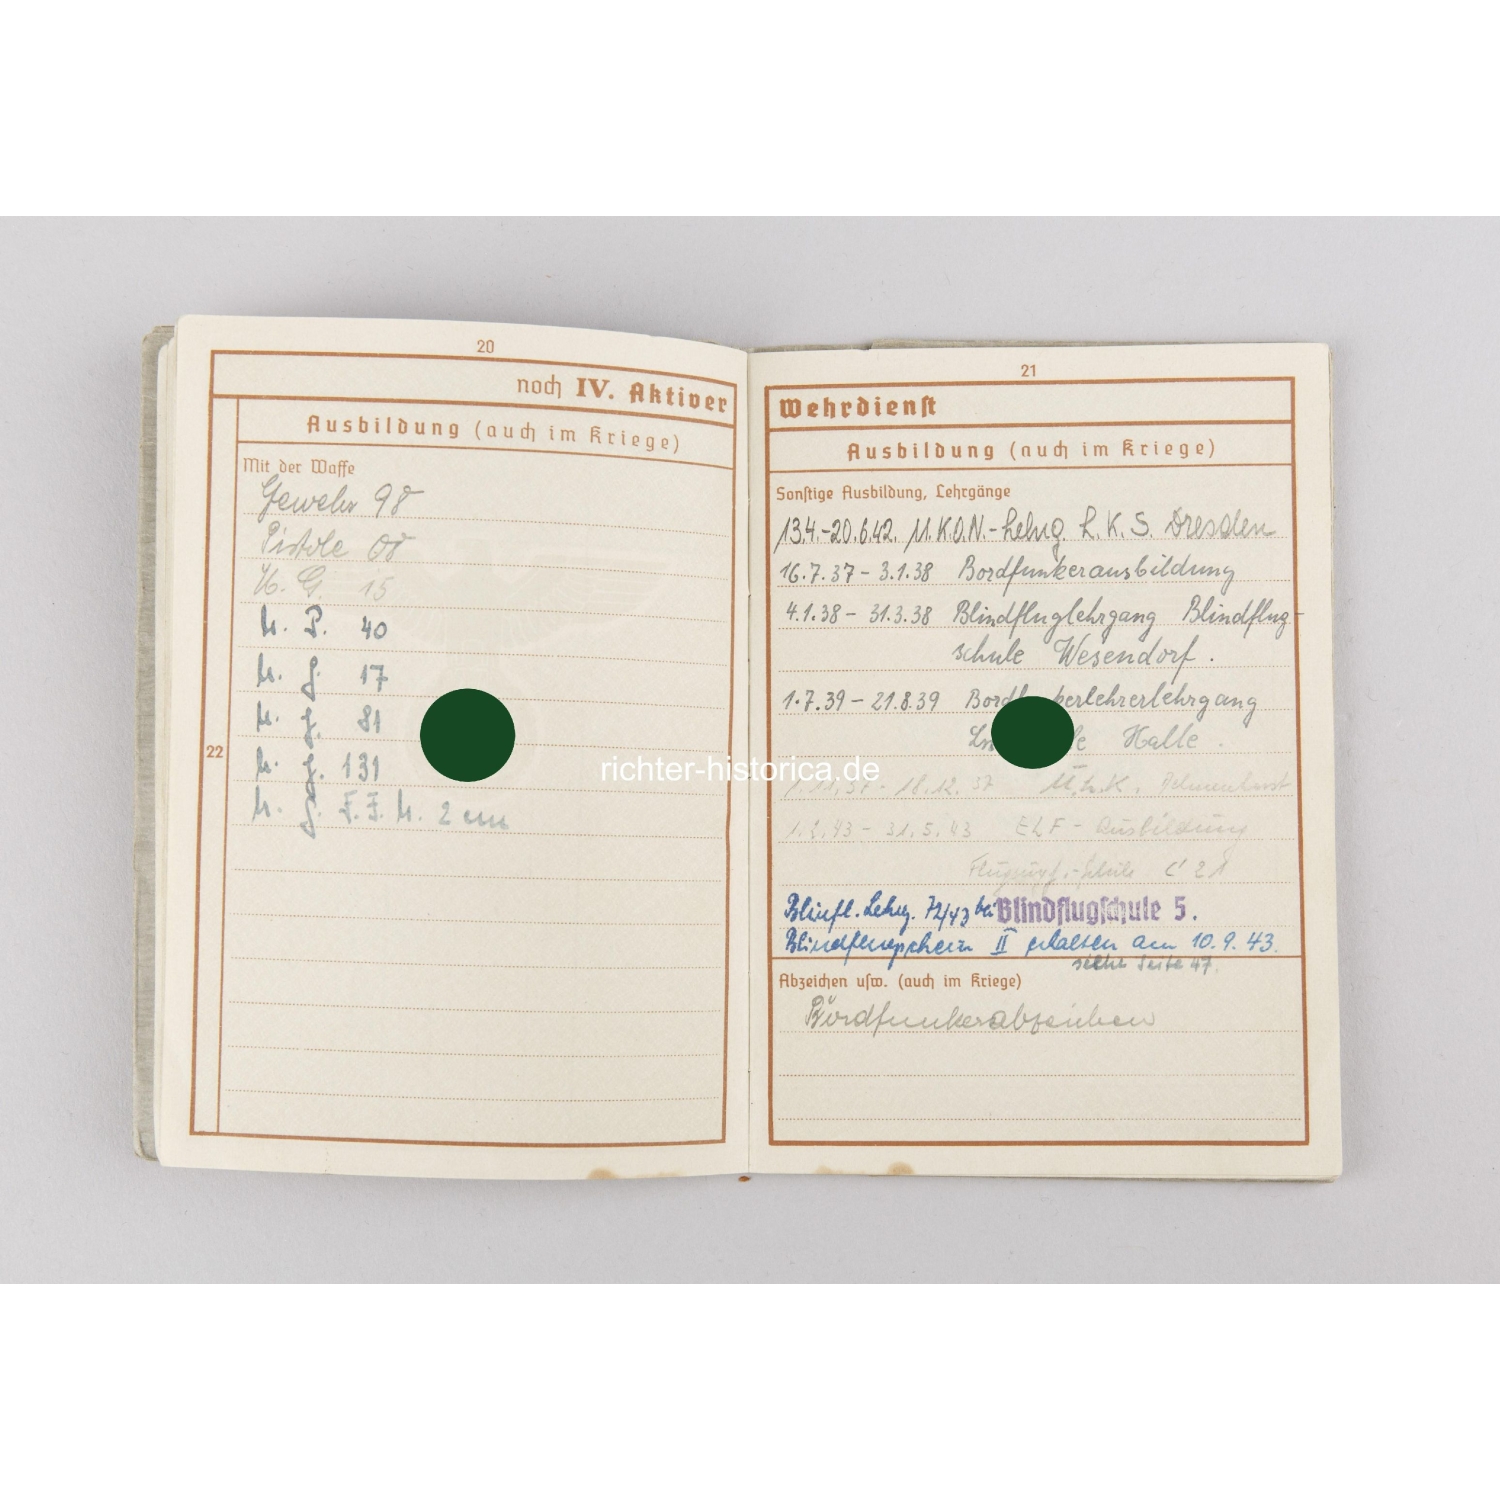 20
noch IV. Aktiver
Ausbildung (auch im Kriege)
Mit der Waffe
Gewehr 98
Pistole 08
M. G. 15
M. P. 40
M. G. 17
M. G. 81
22
M. G. 131
M. G. F. F. M. 2 cm
21
Wehrdienst
Ausbildung (auch im Kriege)
Sonstige Ausbildung, Lehrgänge
13.4.-20.6.42. M.K.O.N.-Lehrg. L.K.S. Dresden
16.7.37 - 3.1.38 Bordfunkerausbildung
4.1.38 - 31.3.38 Blindfluglehrgang Blindflug-
schule Wesendorf.
1.7.39 - 21.8.39
Halle.
18.12.37
1.2.43 - 31.5.43 ELF - Ausbildung
C 21
Blindfl. Lehrg. 72/43 bei Blindflugschule 5.
Blindflugschein II erhalten am 10.9.43.
siehe Seite 47.
Abzeichen usw. (auch im Kriege)
Bordfunkerabzeichen
richter-historica.de